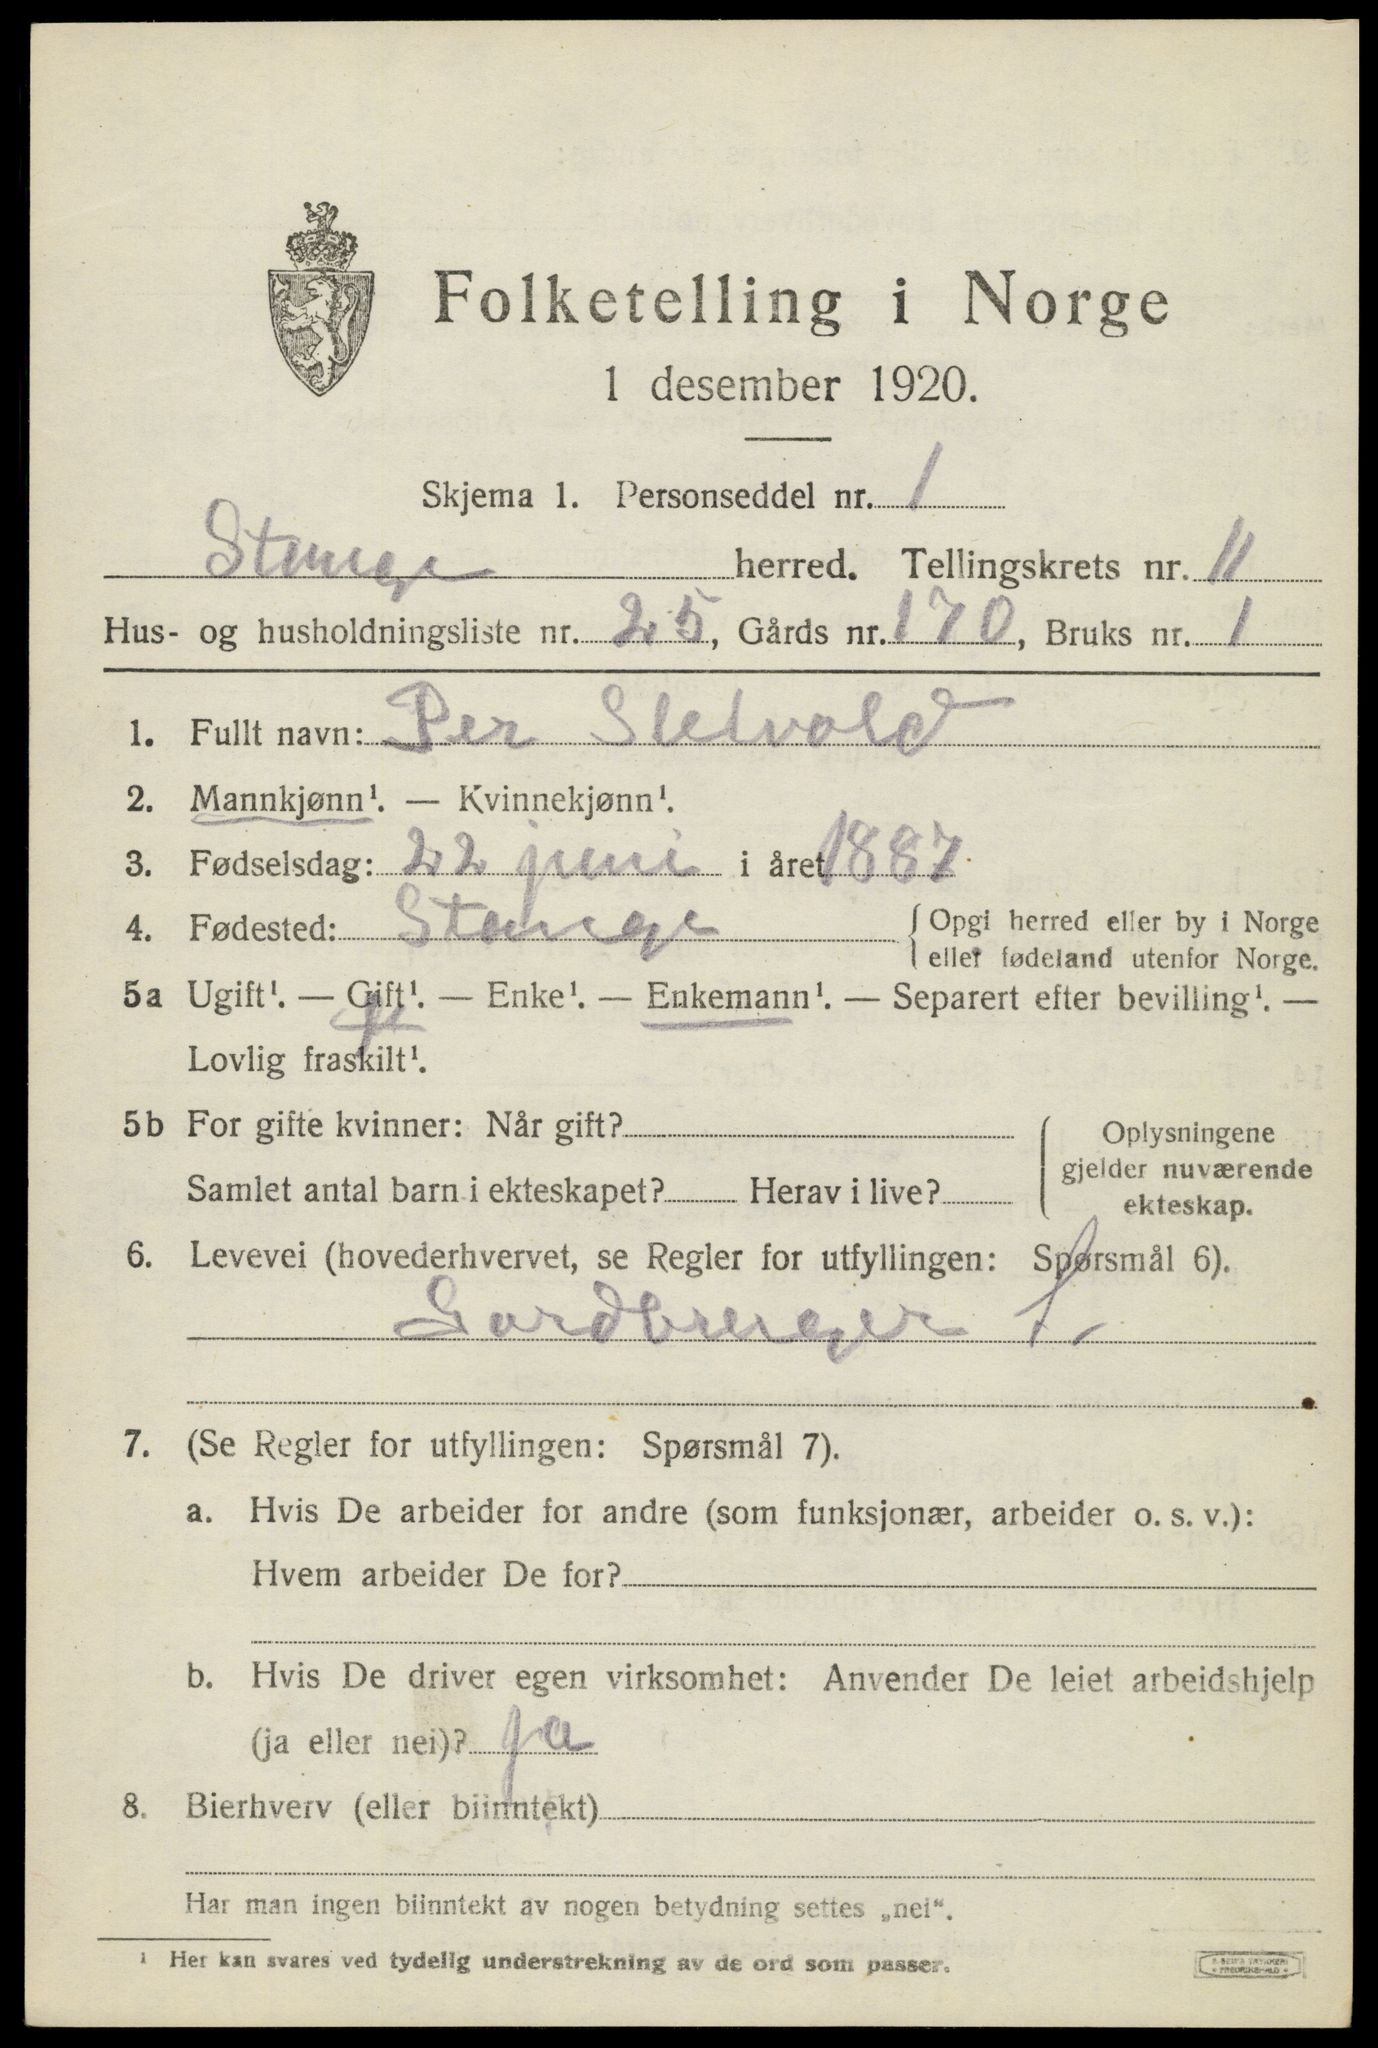 Folketelling i Norge
1 desember 1920.
Skjema 1. Personseddel nr. 1
Stange herred. Tellingskrets nr. 11
Hus- og husholdningsliste nr. 25, Gårds nr. 170, Bruks nr. 1
1. Fullt navn: Per Sletvold
2. Mannkjønn¹. — Kvinnekjønn¹.
3. Fødselsdag: 22 juni i året 1887
4. Fødested: Stange { Opgi herred eller by i Norge
eller fødeland utenfor Norge.
5a Ugift¹. — Gift¹. — Enke¹. — Enkemann¹. — Separert efter bevilling¹. —
Lovlig fraskilt¹.
5b For gifte kvinner: Når gift?
Samlet antal barn i ekteskapet? Herav i live?
Oplysningene
gjelder nuværende
ekteskap.
6. Levevei (hovederhvervet, se Regler for utfyllingen: Spørsmål 6).
Gardbruger
7. (Se Regler for utfyllingen: Spørsmål 7).
a. Hvis De arbeider for andre (som funksjonær, arbeider o. s. v.):
Hvem arbeider De for?
b. Hvis De driver egen virksomhet: Anvender De leiet arbeidshjelp
(ja eller nei)? ja
8. Bierhverv (eller biinntekt)
Har man ingen biinntekt av nogen betydning settes „nei“.
¹ Her kan svares ved tydelig understrekning av de ord som passer.